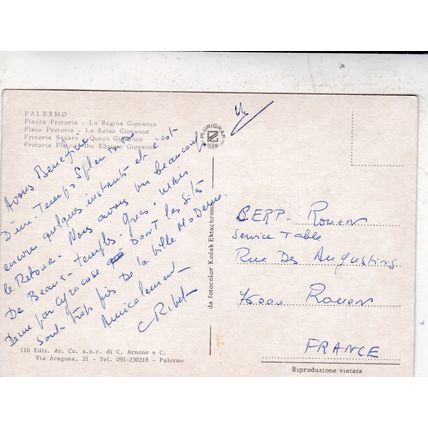 PALERMO
Piazza Pretoria - La Regina Giovanna
Place Pretoria - La Reine Giovanna
Pretoria Square - Queen Giovanna
Pretoria Platz - Die Königin Giovanna
PLURIGRAF
TERNI
Avons Beneficié
D'un Temps Splendide
encore quelques instants et c'est
le Retour. Nous avons vu beaucoup
De Beaux Temples Grecs, mais
Déçu par Syracuse DONT les Sites
Sont trop près De la Ville Moderne.
Amicalement
C Ribet
da fotocolor Kodak Ektachrome
BERP - Rouen
Service Table
Rue Des Augustins
76000 Rouen
FRANCE
110 Ediz. Ar. Co. s.n.c. di C. Arnone e C.
Via Aragona, 21 - Tel. 091-230318 - Palermo
Riproduzione vietata